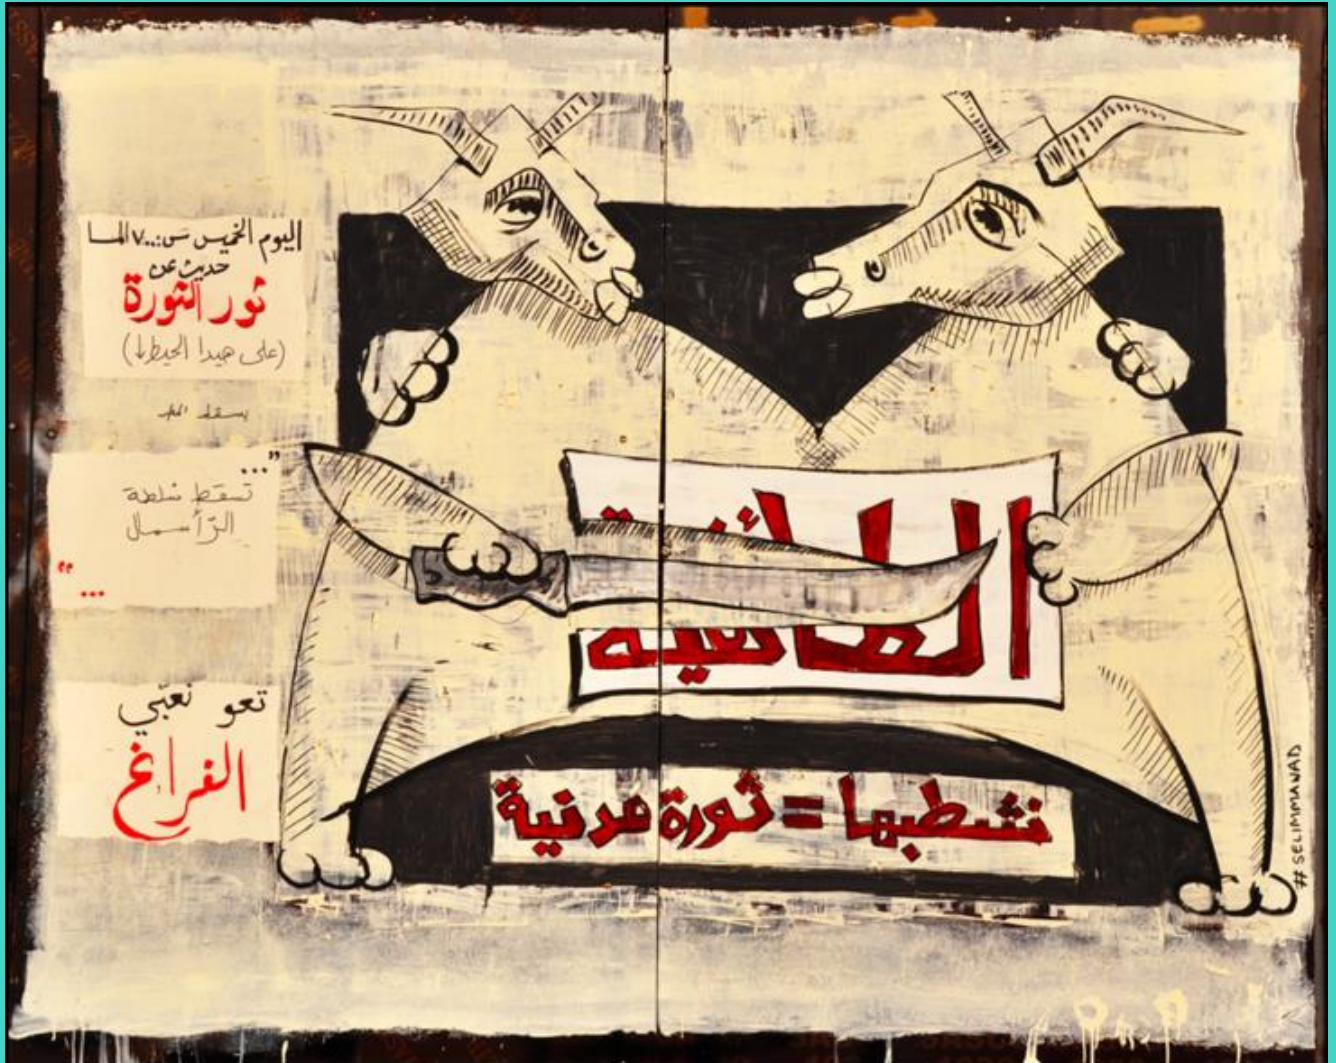 اليوم الخميس س:٧.٠٠ المسا
حديث عن
ثور الثورة
(على هيدا الحيط↓)
يسقط
"...
تسقط سلطة
الرّأسمال
..."
تعو نعبّي
الفراغ
الطائفية
نشطبها = ثورة مدنية
#SELIMMAWAD